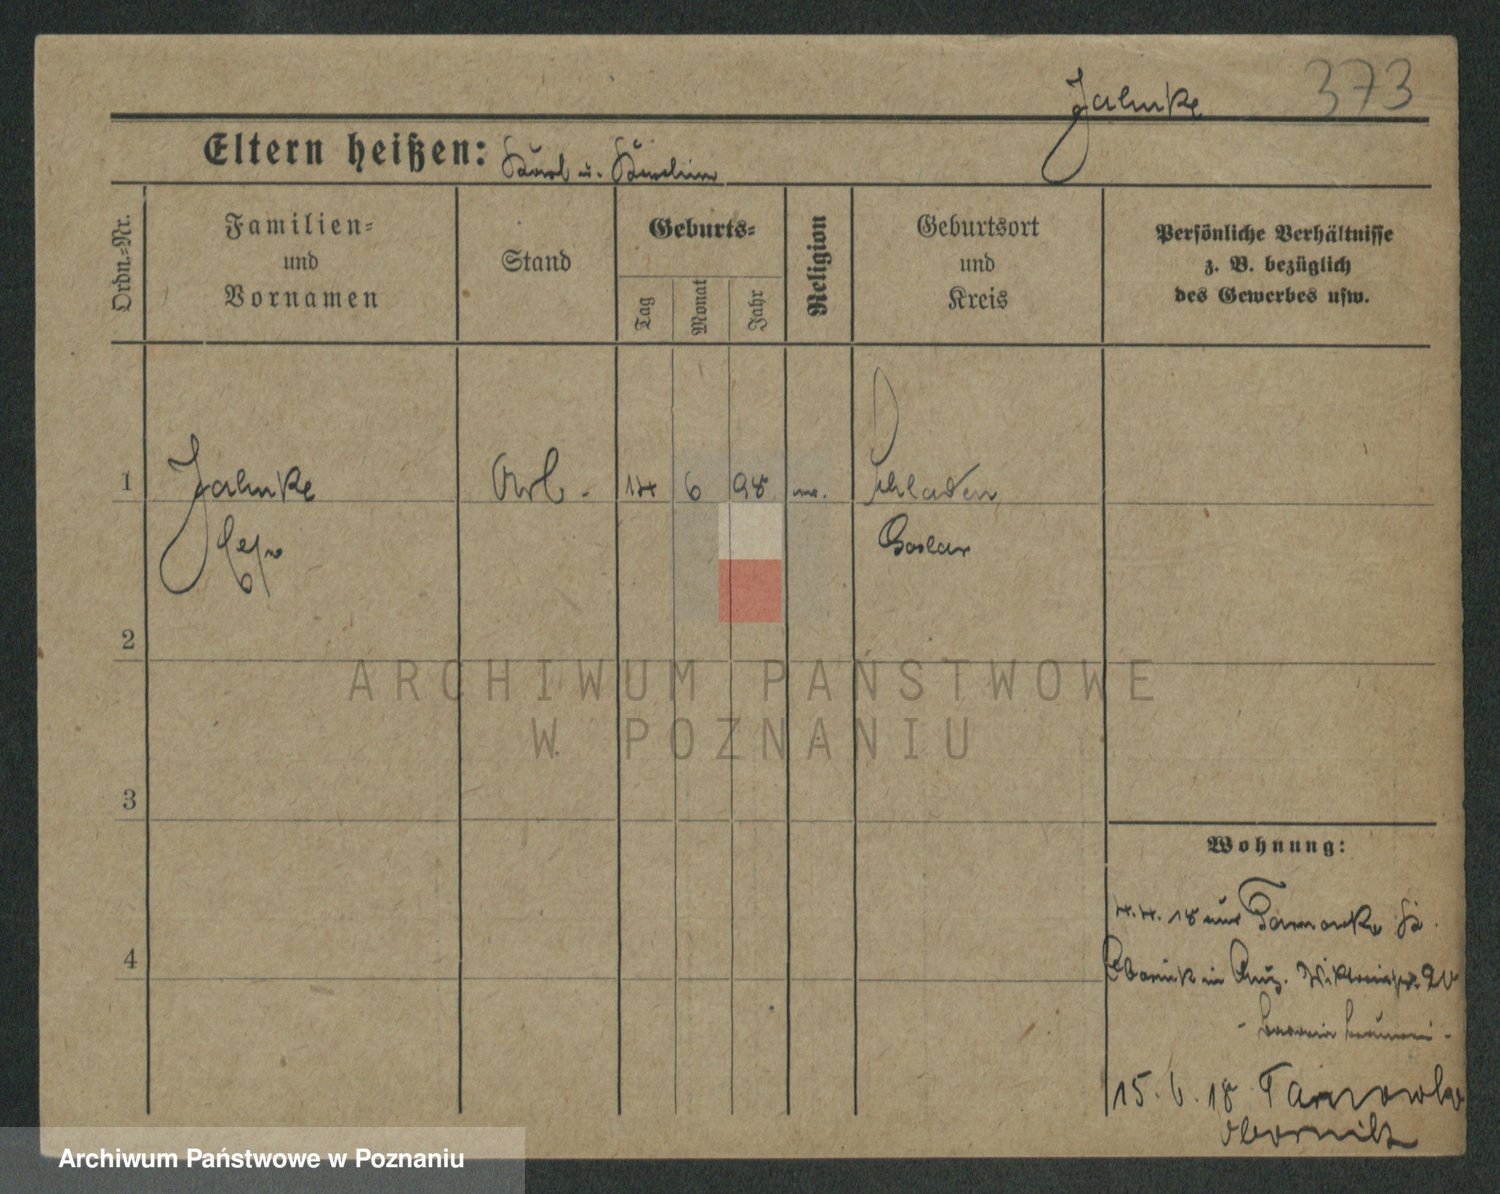 373
Jahnke
Eltern heißen: Karl u. Karoline
Ordn.-Nr.
Familien-
und
Vornamen
Stand
Geburts-
Tag
Monat
Jahr
Religion
Geburtsort
und
Kreis
Persönliche Verhältnisse
z. B. bezüglich
des Gewerbes usw.
1
Jahnke
Arb.
14
6
98
Schladen
Goslar
2
ARCHIWUM PAŃSTWOWE
W POZNANIU
3
Wohnung:
4.4.18 aus
4
Obornik in
20
15.6.18 Tarnowko
Obornik
Archiwum Państwowe w Poznaniu